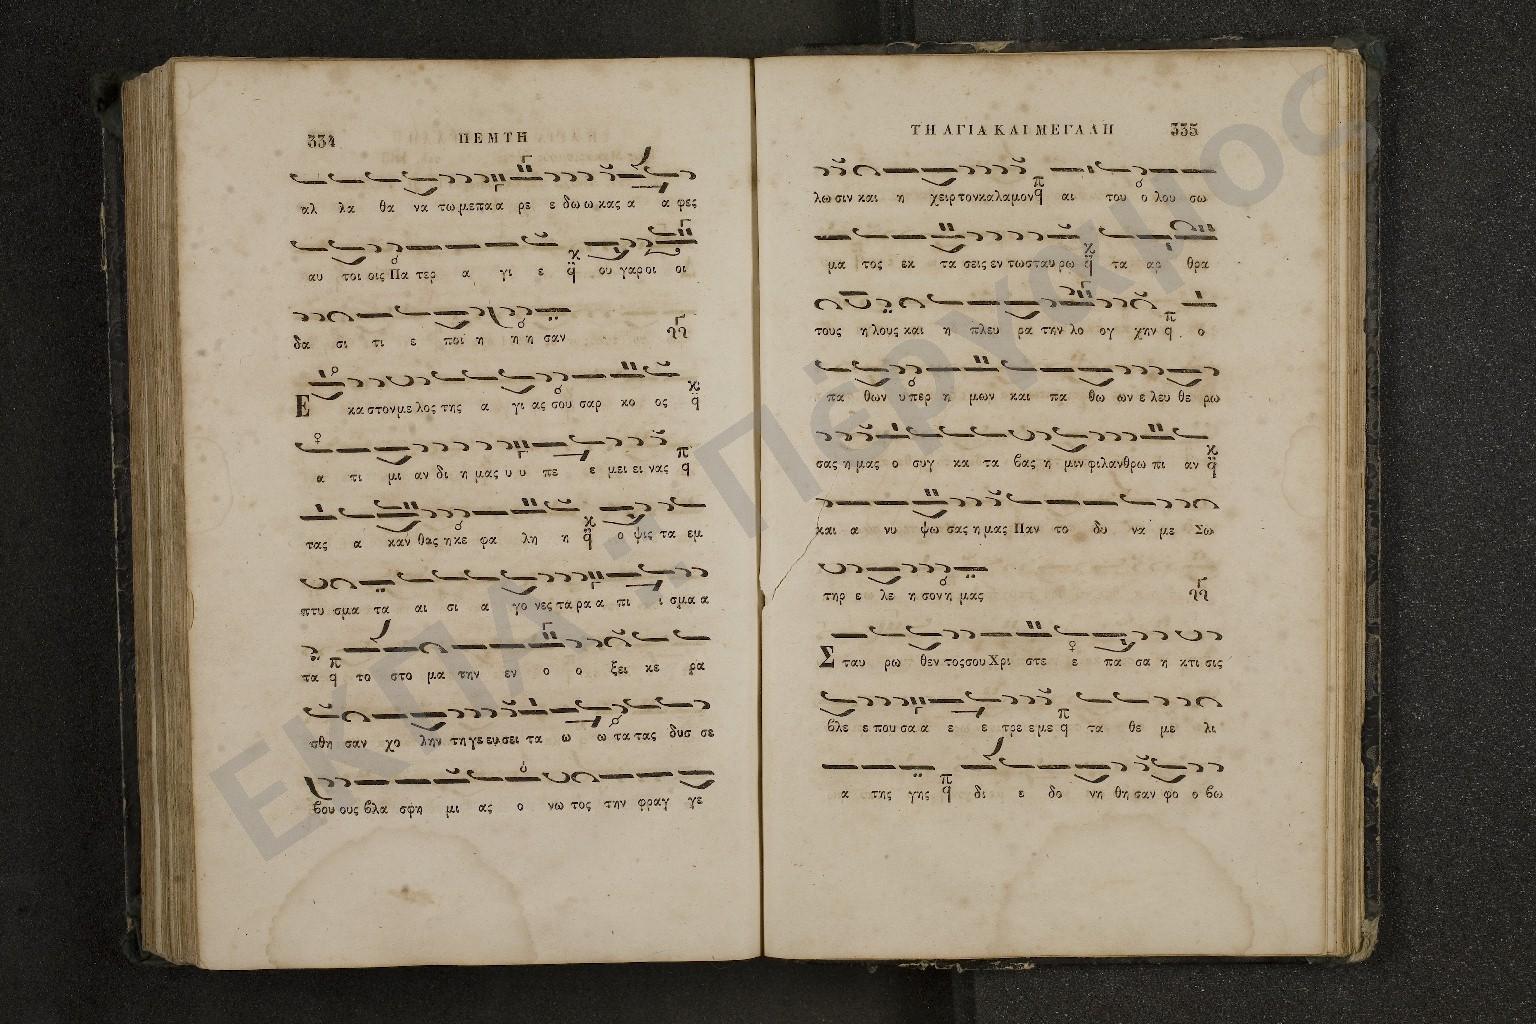 334 ΠΕΜΤΗ
αλ λα θα να τω με πα α ρε ε δω ω κας α α φες
αυ τοι οις Πα τερ α γι ε ου γαρ οι οι
δα σι τι ε ποι η η η σαν
Ε κα στον με λος της α γι ας σου σαρ κο ος
α τι μι αν δι η μας υ υ πε ε μει ει νας
τας α καν θας η κε φα λη η ο ψις τα εμ
πτυ σμα τα αι σι α γο νες τα ρα α πι ι σμα α
τα το στο μα την εν ο ο ξει κε ρα
σθη σαν χο λην τη γε ευ σει τα ω ω τα τας δυσ σε
βου ους βλα σφη μι ας ο νω τος την φραγ γε
ΤΗ ΑΓΙΑ ΚΑΙ ΜΕΓΑΛΗ 335
λω σιν και η χειρ τον καλαμον αι του ο λου σω
μα τος εκ τα σεις εν τω σταυ ρω τα αρ θρα
τους η λους και η πλευ ρα την λο ογ χην ο
πα θων υ περ η μων και πα θω ων ε λευ θε ρω
σας η μας ο συγ κα τα βας η μιν φιλανθρω πι αν
και α νυ ψω σας η μας Παν το δυ να με Σω
τηρ ε λε η σον η μας
Σ ταυ ρω θεν τος σου Χρι στε ε πα σα η κτι σις
βλε ε που σα α ε ε τρε ε με τα θε με λι
α της γης δι ε δο νη θη σαν φο ο βω
ΕΚΠΑ: Πέργαμος